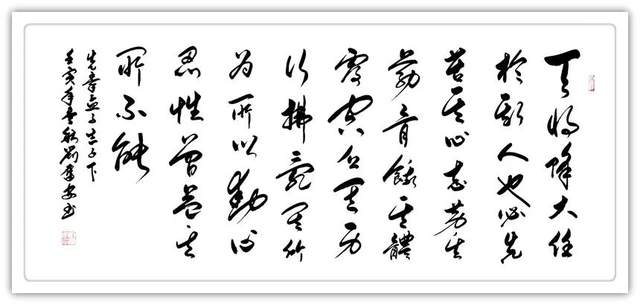 天将降大任
於斯人也必先
苦其心志劳其
筋骨餓其體
膚空乏其身
行拂亂其所
为所以動心
忍性曾益其
所不能
孟子告子下
壬寅年秋劉书